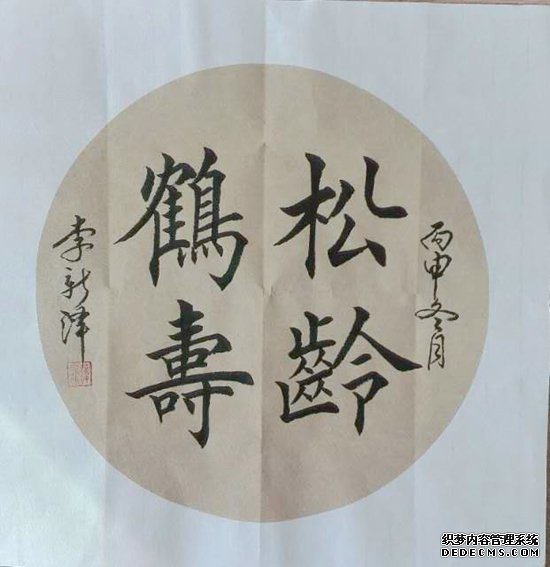 丙申冬月
松齡
鶴壽
李新泽
织梦内容管理系统
DEDECMS.COM